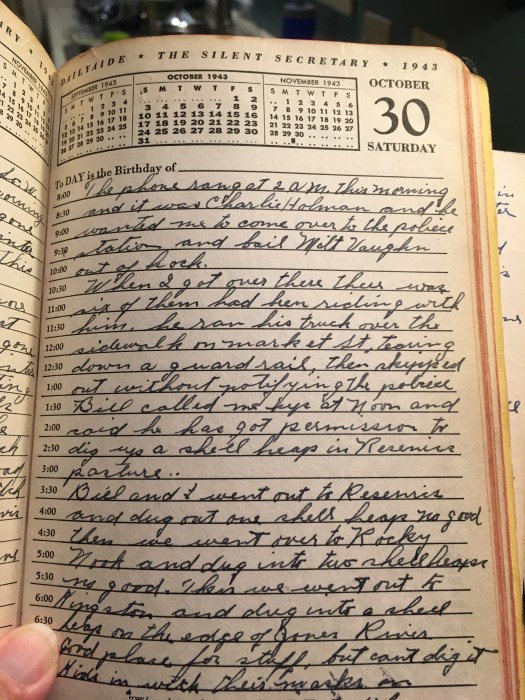 DAILYAIDE ★ THE SILENT SECRETARY ★ 1943
SEPTEMBER 1943
S M T W T F S
. . . 1 2 3 4
5 6 7 8 9 10 11
12 13 14 15 16 17 18
19 20 21 22 23 24 25
26 27 28 29 30 . .
OCTOBER 1943
S M T W T F S
. . . . . 1 2
3 4 5 6 7 8 9
10 11 12 13 14 15 16
17 18 19 20 21 22 23
24 25 26 27 28 29 30
31 . . . . . .
NOVEMBER 1943
S M T W T F S
. 1 2 3 4 5 6
7 8 9 10 11 12 13
14 15 16 17 18 19 20
21 22 23 24 25 26 27
28 29 30 . . . .
OCTOBER
30
SATURDAY
To DAY is the Birthday of
8:00 The phone rang at 2 a.m. this morning
8:30 and it was Charlie Holman and he
9:00 wanted me to come over to the police
9:30 station and bail Milt Vaughn
10:00 out of hock.
10:30 When I got over there there was
11:00 six of them had ben riding with
11:30 him. he ran his truck over the
12:00 sidewalk on market St, tearing
12:30 down a guard rail, then skipped
1:00 out without notifying the police
1:30 Bill called me up at Noon and
2:00 said he has got permission to
2:30 dig up a shell heap in
3:00 pasture..
3:30 Bill and I went out to
4:00 and dug out one shell heap no good
4:30 then we went over to Rocky
5:00 Nook and dug into two shell heaps
5:30 no good. Then we went out to
6:00 Kingston and dug into a shell
6:30 heap on the edge of Jones River
Good place for stuff, but cant dig it
Kids in with their marks on